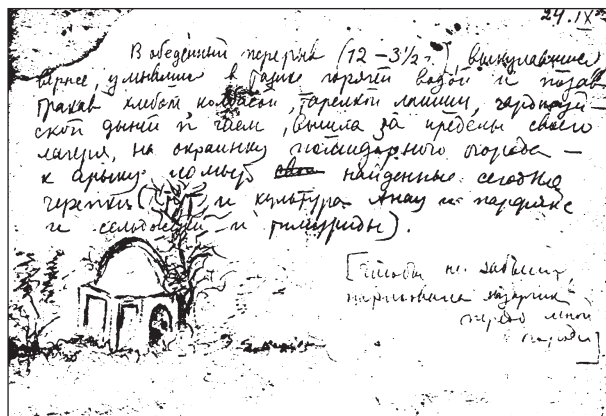 24.IX
В обеденный перерыв (12 – 3½ ), выкупавшись
вернее, умывшись в тазике горячей водой и позав
тракав хлебом колбасой, тарелкой лапши, чарджуй-
ской дыней и чаем, вышла за пределы своего
лагеря, на окраинку помидорного огорода –
к арыку помыть найденные сегодня
черепки (тут и культура Анау и парфянские
и сельджуки и тимуриды).
[Чтобы не забыть,
нарисовала мазарчик
передо мной